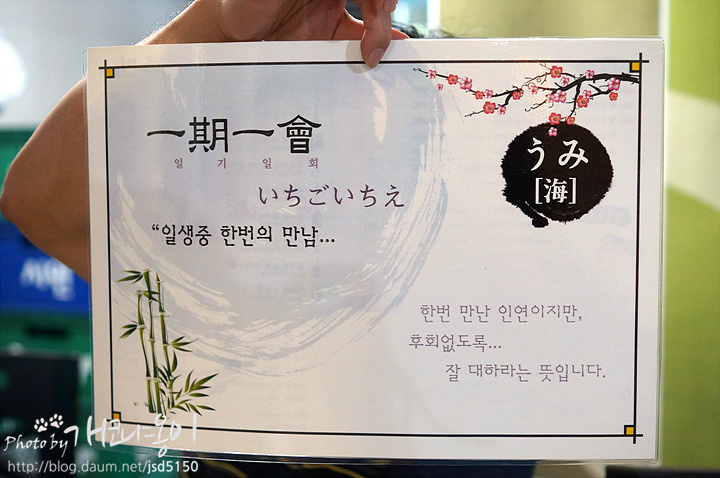 一期一會
일 기 일 회
いちごいちえ
"일생중 한번의 만남...
うみ
[海]
한번 만난 인연이지만,
후회없도록...
잘 대하라는 뜻입니다.
시면
Photo by 개코냐옹이
http://blog.daum.net/jsd5150